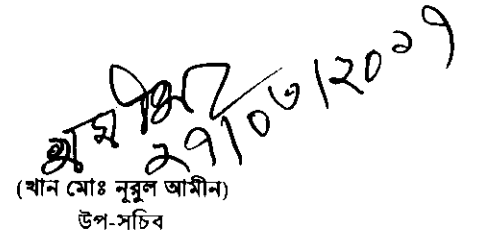 ২৭/০৩/২০১৭
(খান মোঃ নূরুল আমীন)
উপ-সচিব